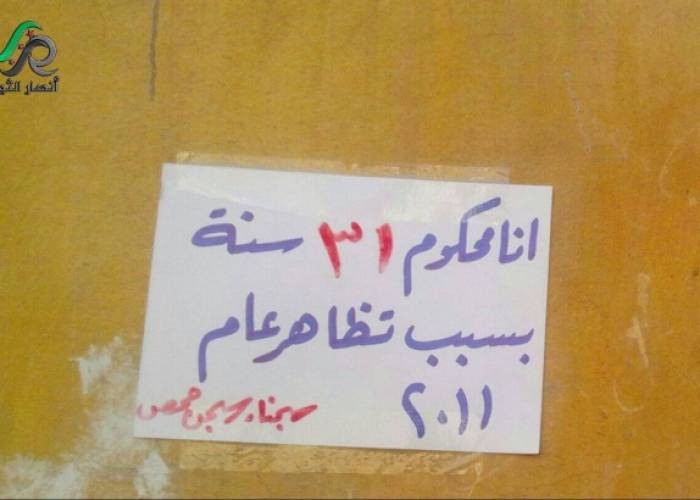 أنصار الثو
انا محكوم ٣١ سنة
بسبب تظاهر عام
٢٠١١
سجناء سجن حمص